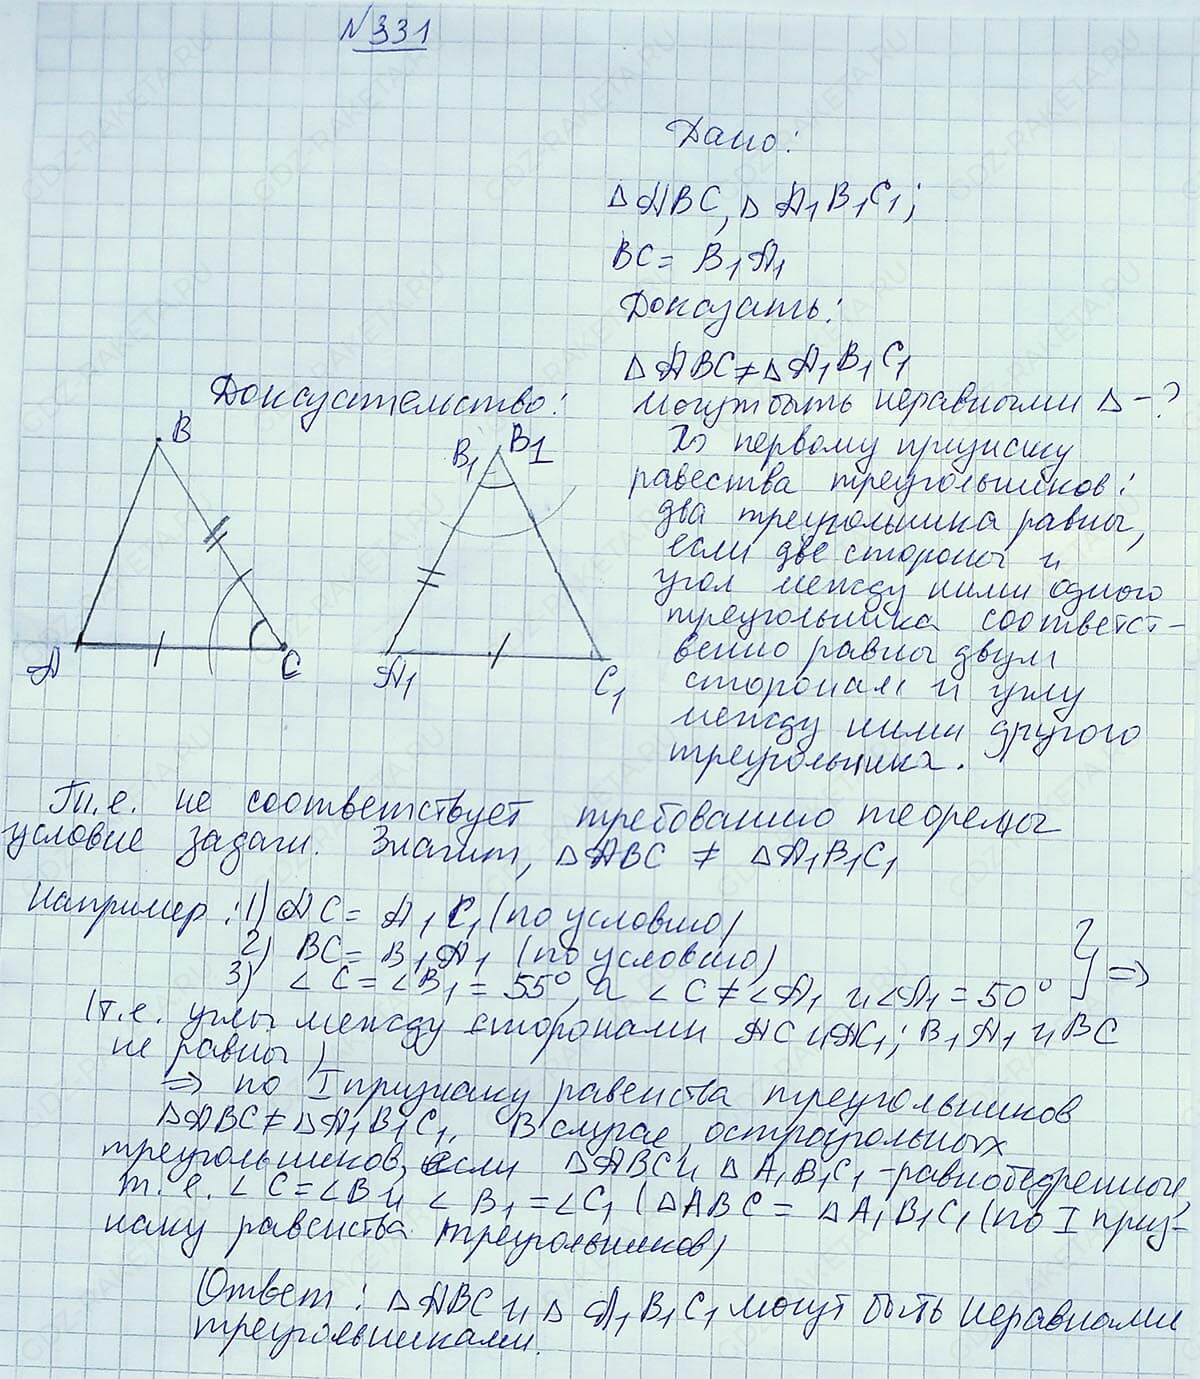 №331
Дано:
Δ ABC, Δ A₁B₁C₁;
BC = B₁A₁
Доказать:
Δ ABC ≠ Δ A₁B₁C₁
могут быть неравными Δ - ?
Доказательство:
B
A
C
B₁ B₁
A₁
C₁
По первому признаку
равества треугольников:
два треугольника равны,
если две стороны и
угол между ними одного
треугольника соответст-
венно равны двум
сторонам и углу
между ними другого
треугольника.
Т.е. не соответствует требованию теоремы
условие задачи. Значит, Δ ABC ≠ Δ A₁B₁C₁
Например: 1) AC = A₁C₁ (по условию)
2) BC = B₁A₁ (по условию)
3) ∠C = ∠B₁ = 55°, а ∠C ≠ ∠A₁ и ∠A₁ = 50° } =>
(т.е. углы между сторонами AC и AC₁; B₁A₁ и BC
не равны)
=> по I признаку равенства треугольников
Δ ABC ≠ Δ A₁B₁C₁. В случае остроугольных
треугольников, если Δ ABC и Δ A₁B₁C₁ - равнобедренные,
т.е. ∠C = ∠B и ∠B₁ = ∠C₁ (Δ ABC = Δ A₁B₁C₁ (по I приз-
наку равенства треугольников)
Ответ: Δ ABC и Δ A₁B₁C₁ могут быть неравными
треугольниками.
GDZ-RAKETA.RU